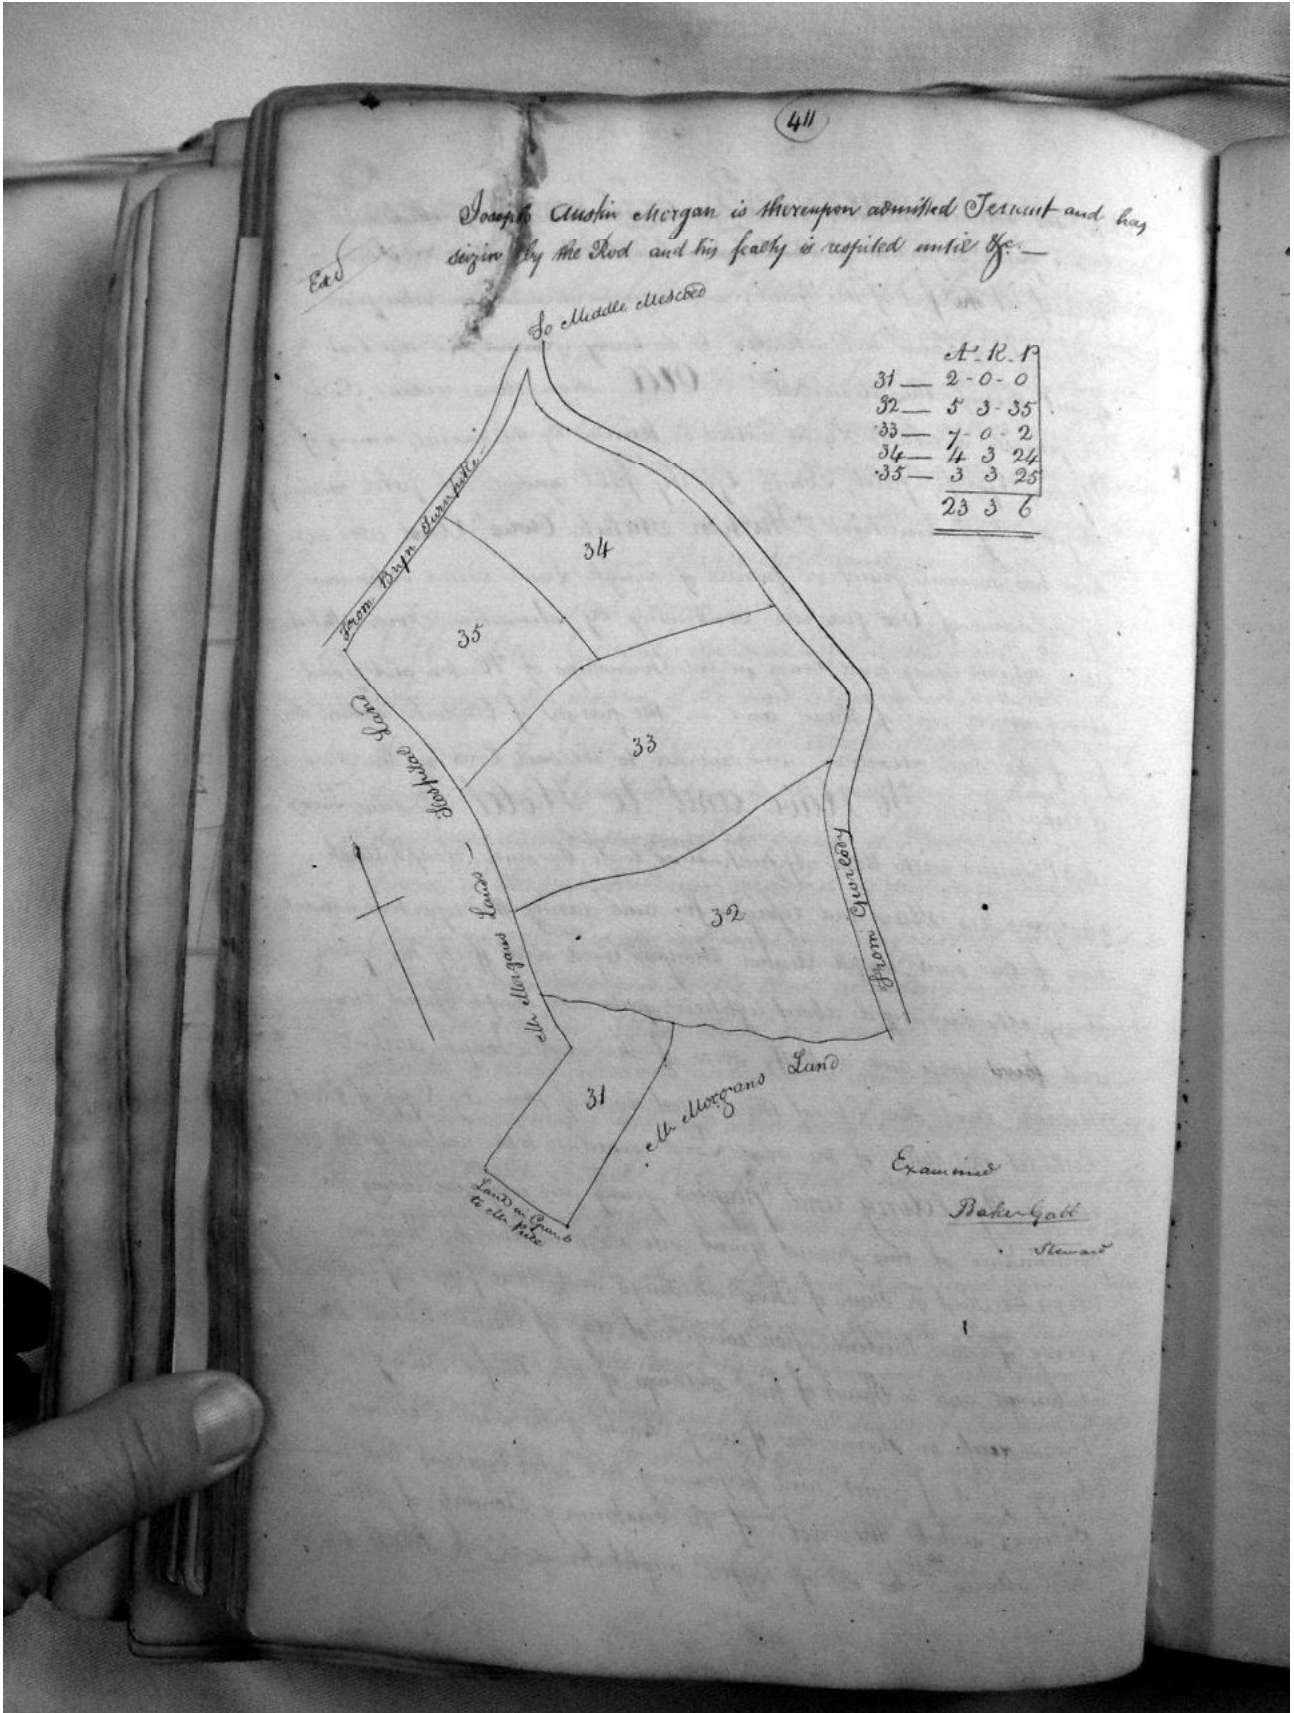 411
Joseph Austin Morgan is thereupon admitted Tenant and has
seizin by the Rod and his fealty is respited until &c. —
Exd
To Middle Mescoed
A. R. P
31 — 2 - 0 - 0
32 — 5 3 - 35
33 — 7 - 0 - 2
34 — 4 3 24
35 — 3 3 25
23 3 6
From Bryn Turnpike
34
35
Hospital Land
33
Mr Morgans Lands —
32
From Groescody
31
Mr Morgans Land
Land in
to Mr
Examined
Baker Gabb
Steward